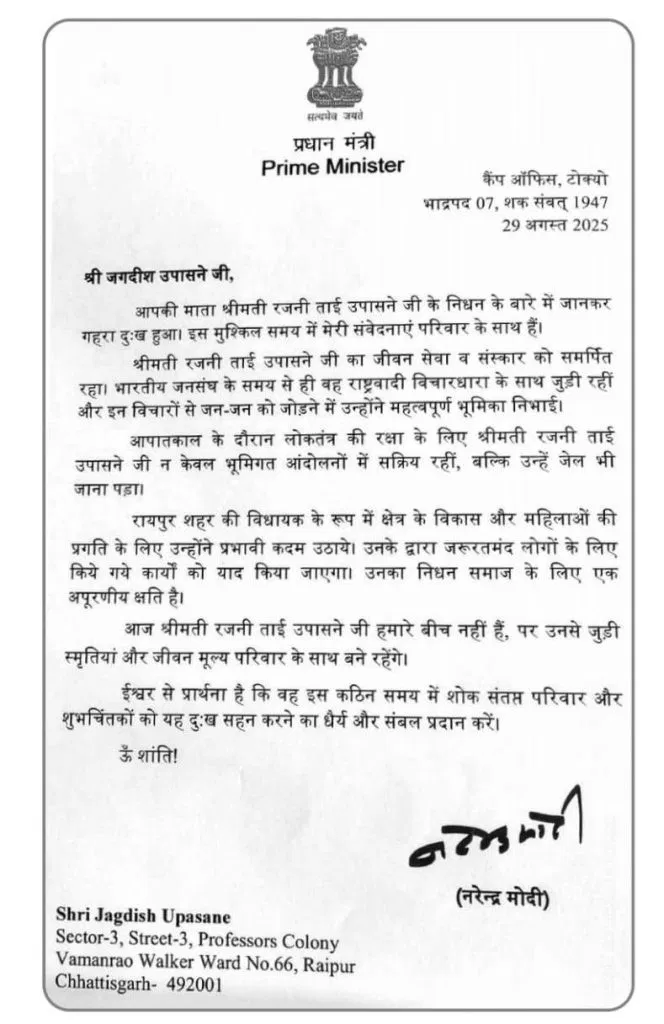 सत्यमेव जयते
प्रधान मंत्री
Prime Minister
कैंप ऑफिस, टोक्यो
भाद्रपद 07, शक संवत् 1947
29 अगस्त 2025
श्री जगदीश उपासने जी,
आपकी माता श्रीमती रजनी ताई उपासने जी के निधन के बारे में जानकर
गहरा दुःख हुआ। इस मुश्किल समय में मेरी संवेदनाएं परिवार के साथ हैं।
श्रीमती रजनी ताई उपासने जी का जीवन सेवा व संस्कार को समर्पित
रहा। भारतीय जनसंघ के समय से ही वह राष्ट्रवादी विचारधारा के साथ जुड़ी रहीं
और इन विचारों से जन-जन को जोड़ने में उन्होंने महत्वपूर्ण भूमिका निभाई।
आपातकाल के दौरान लोकतंत्र की रक्षा के लिए श्रीमती रजनी ताई
उपासने जी न केवल भूमिगत आंदोलनों में सक्रिय रहीं, बल्कि उन्हें जेल भी
जाना पड़ा।
रायपुर शहर की विधायक के रूप में क्षेत्र के विकास और महिलाओं की
प्रगति के लिए उन्होंने प्रभावी कदम उठाये। उनके द्वारा जरूरतमंद लोगों के लिए
किये गये कार्यों को याद किया जाएगा। उनका निधन समाज के लिए एक
अपूरणीय क्षति है।
आज श्रीमती रजनी ताई उपासने जी हमारे बीच नहीं हैं, पर उनसे जुड़ी
स्मृतियां और जीवन मूल्य परिवार के साथ बने रहेंगे।
ईश्वर से प्रार्थना है कि वह इस कठिन समय में शोक संतप्त परिवार और
शुभचिंतकों को यह दुःख सहन करने का धैर्य और संबल प्रदान करें।
ऊँ शांति!
नरेन्द्र मोदी
(नरेन्द्र मोदी)
Shri Jagdish Upasane
Sector-3, Street-3, Professors Colony
Vamanrao Walker Ward No.66, Raipur
Chhattisgarh- 492001